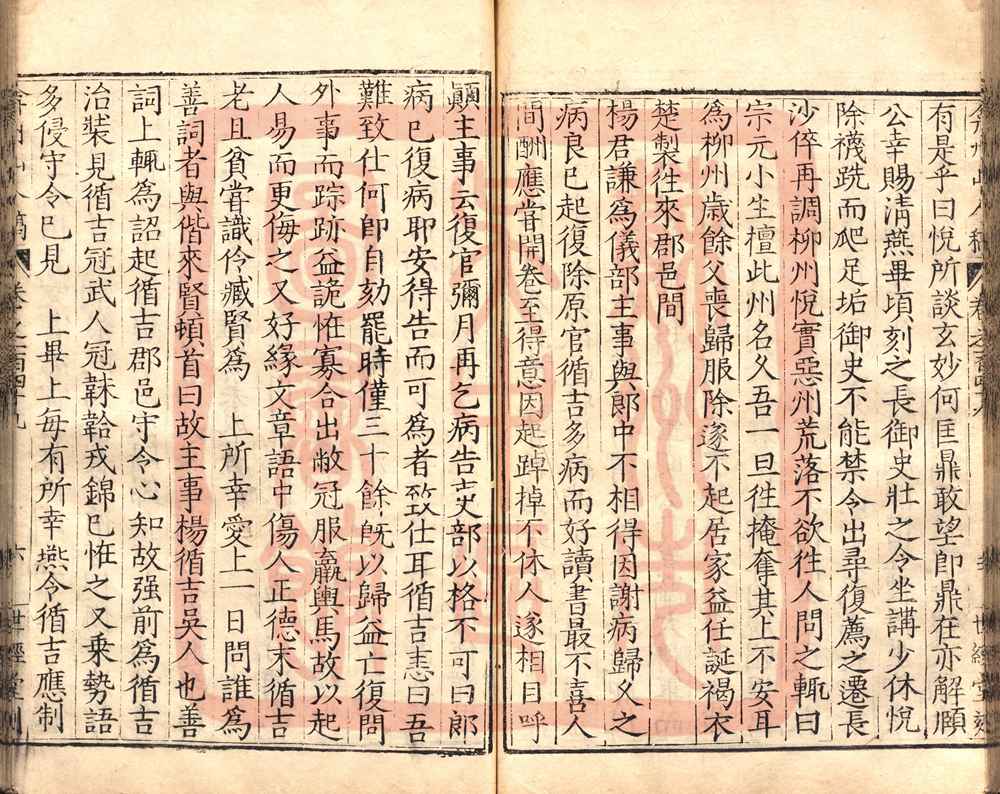 有是乎曰悅所談玄妙何匡鼎敢望即鼎在亦解頤
公幸賜清燕畢頃刻之長御史壯之令坐講少休悅
除襪跣而爬足垢御史不能禁令出尋復薦之遷長
沙倅再調柳州悅實惡州荒落不欲徃人問之輒曰
宗元小生擅此州名久吾一旦徃掩奪其上不安耳
為柳州歲餘父喪歸服除遂不起居家益任誕褐衣
楚製徃來郡邑間
楊君謙為儀部主事與郎中不相得因謝病歸久之
病良已起復除原官循吉多病而好讀書最不喜人
間酬應嘗開卷至得意因起踔掉不休人遂相目呼
顛主事云復官彌月再乞病告吏部以格不可曰郎
病已復病耶安得告而可為者致仕耳循吉恚曰吾
難致仕何即自劾罷時僅三十餘旣以歸益亡復問
外事而踪跡益詭恠寡合出敝冠服羸輿馬故以起
人易而更侮之又好緣文章語中傷人正德末循吉
老且貧嘗識伶臧賢為　上所幸愛上一日問誰為
善詞者與偕來賢頓首曰故主事楊循吉吳人也善
詞上輒為詔起循吉郡邑守令心知故强前為循吉
治裝見循吉冠武人冠韎韐戎錦已恠之又乗勢語
多侵守令已見　上畢上每有所幸燕令循吉應制
卷之百四十九
六
世經堂刻